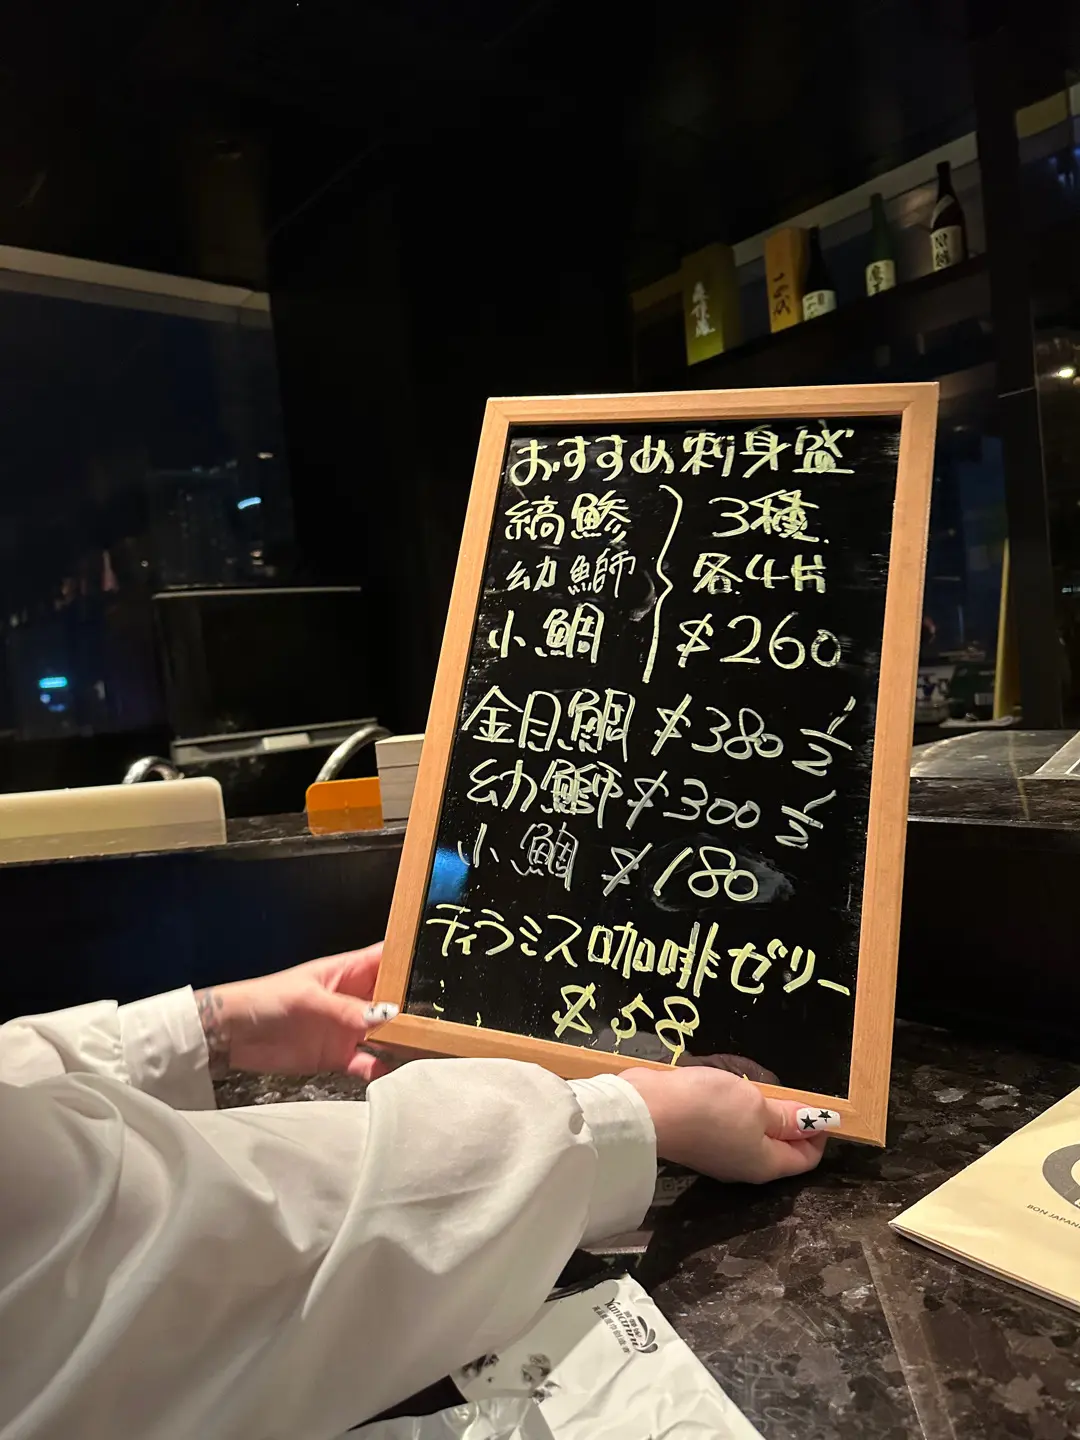 おすすめ刺身盛
縞鯵
幼鰤
小鯛
3種
各4片
$260
金目鯛 $380
幼鰤 $300
小鯛 $180
ティラミス咖啡ゼリー
$58
十四代
魔王
BON JAPAN